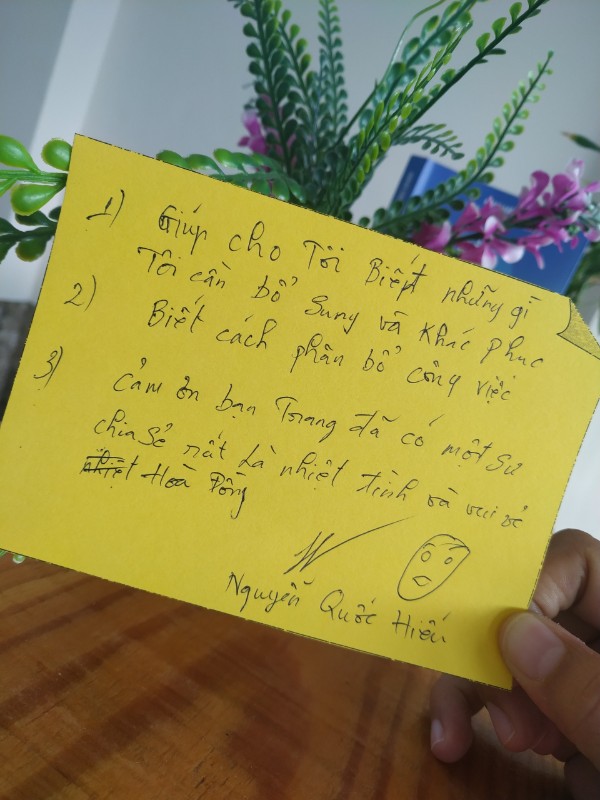 1) Giúp cho Tôi Biết những gì
Tôi cần bổ sung và khắc phục
2) Biết cách phân bổ công việc
3) Cảm ơn bạn Trang đã có một sự
chia sẻ rất là nhiệt tình và vui vẻ
Hoà Đồng
Nguyễn Quốc Hiếu